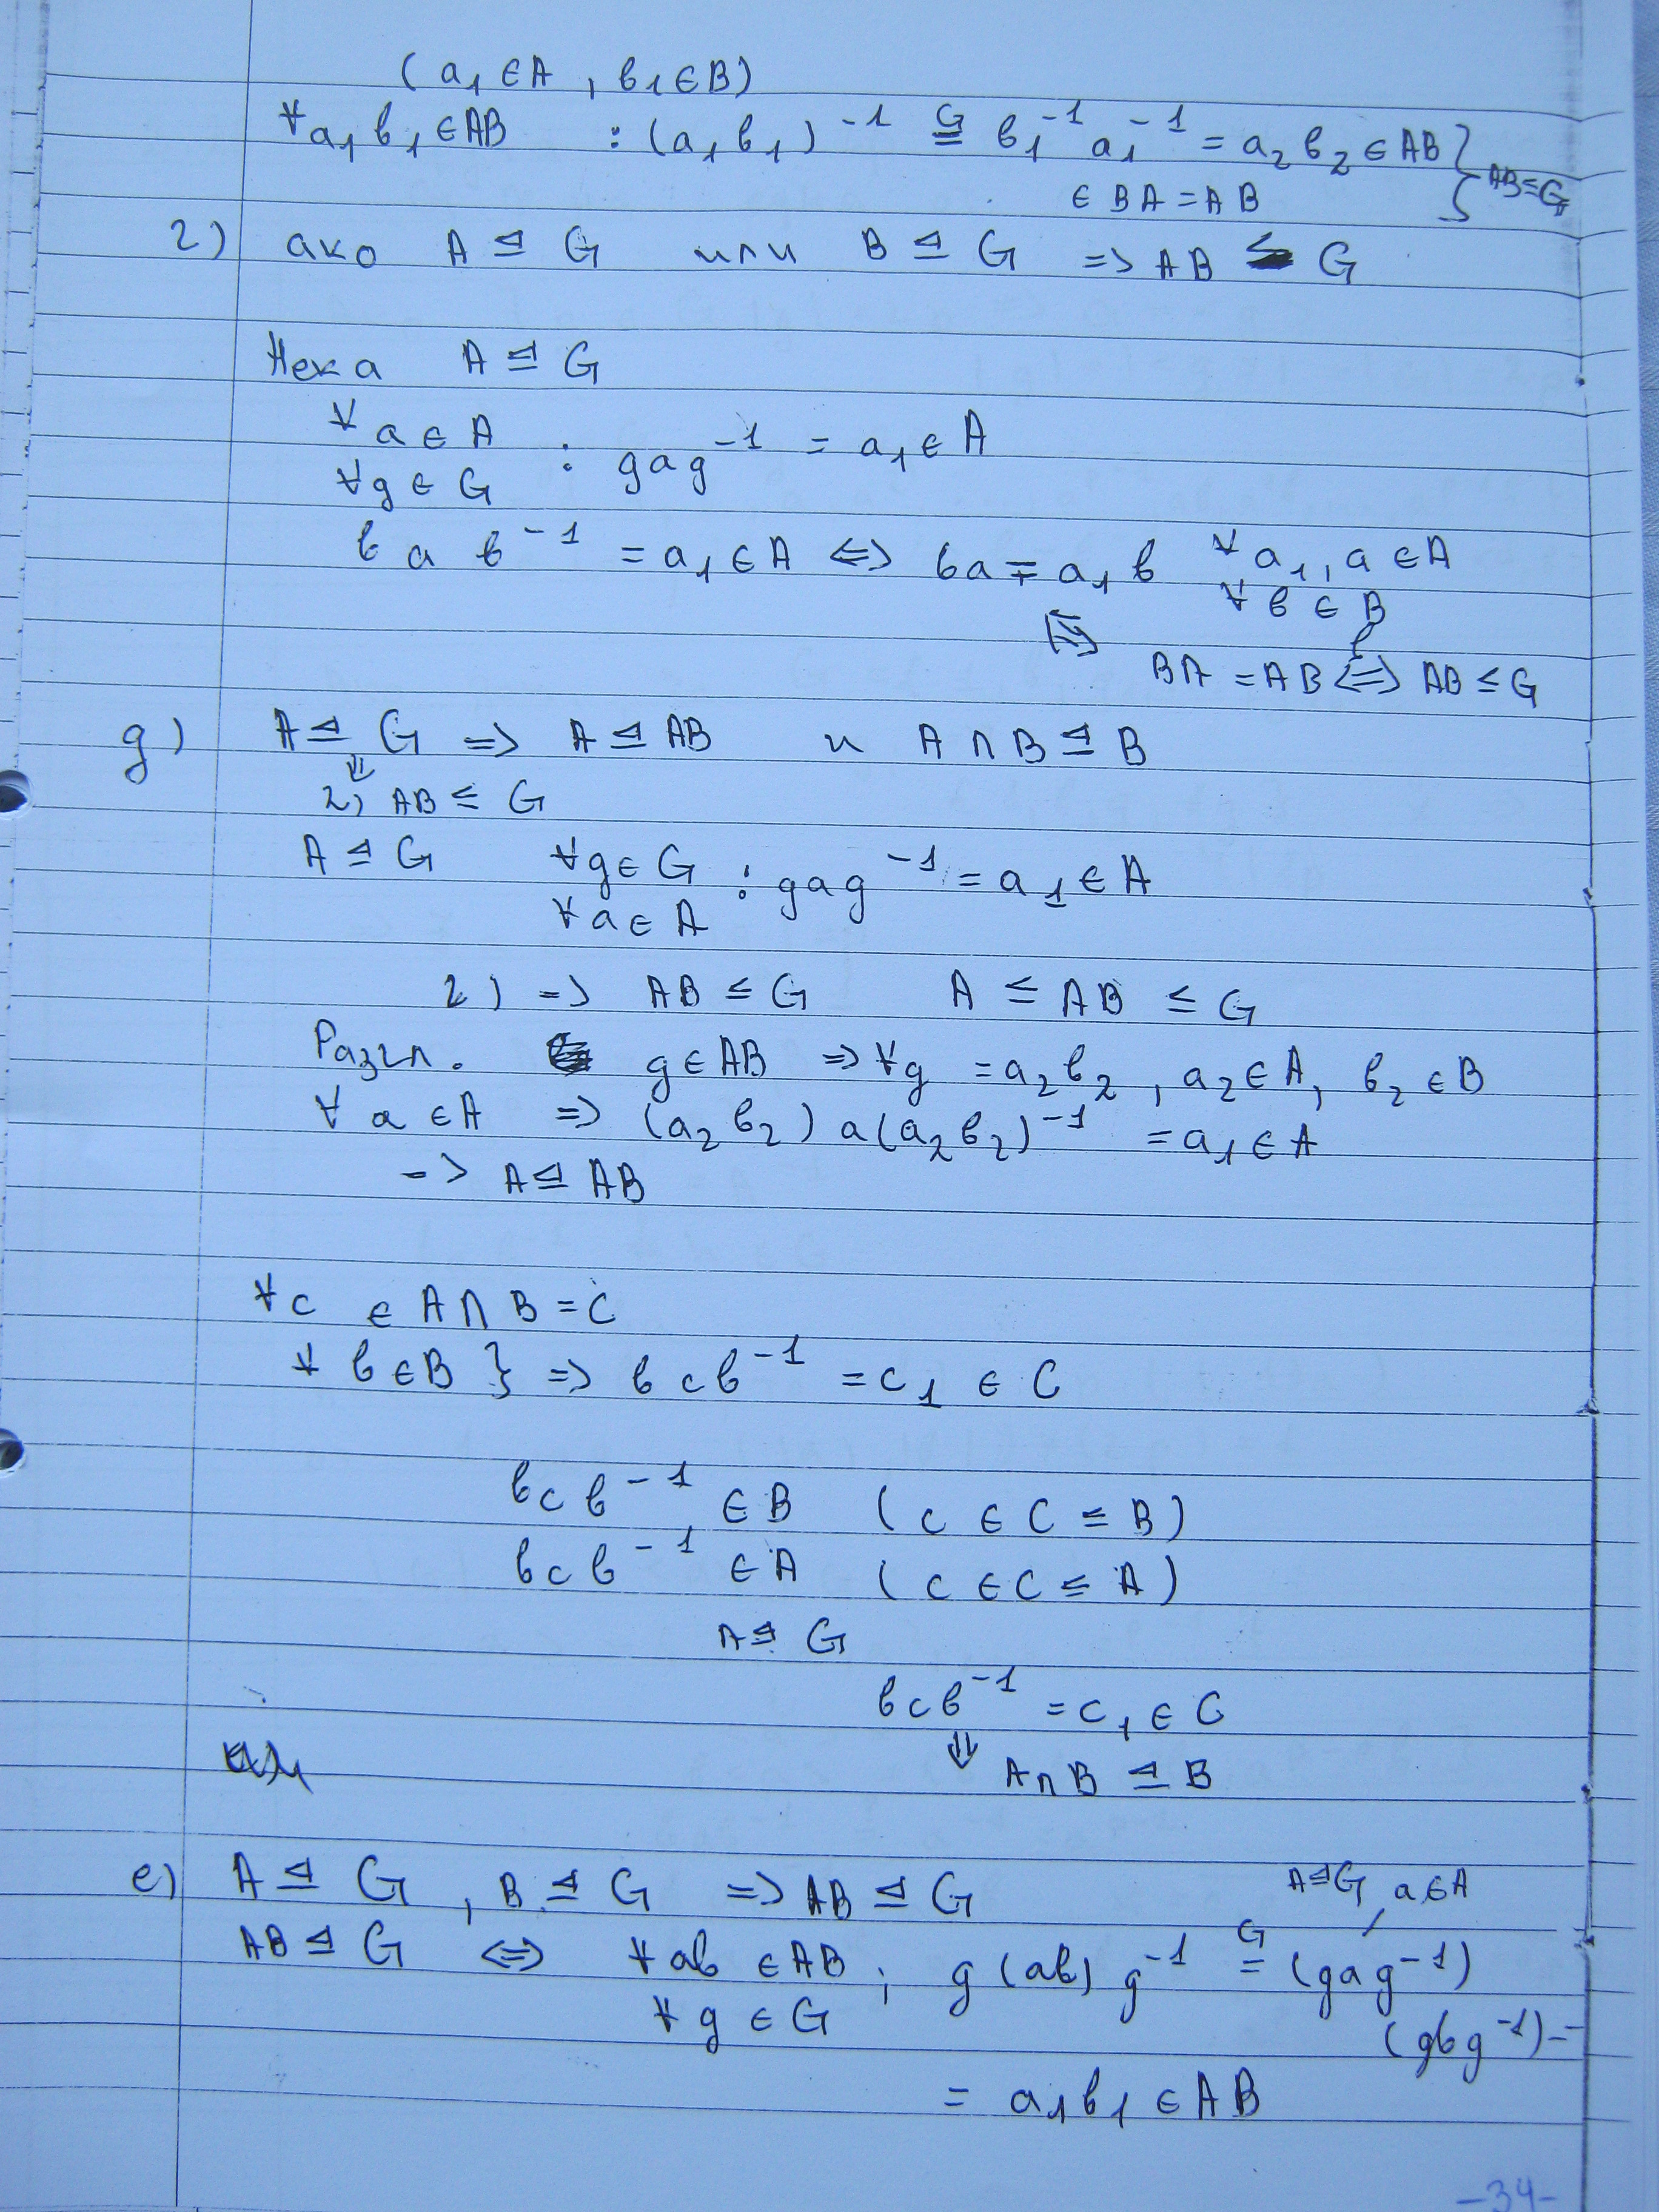 (a₁ ∈ A , b₁ ∈ B)
∀ a₁ b₁ ∈ AB : (a₁ b₁)⁻¹ ≝ᴳ b₁⁻¹ a₁⁻¹ = a₂ b₂ ∈ AB } AB ≤ G
∈ BA = AB
г) ако A ⊴ G или B ⊴ G => AB ≤ G
Нека A ⊴ G
∀ a ∈ A
∀ g ∈ G : gag⁻¹ = a₁ ∈ A
в a в⁻¹ = a₁ ∈ A <=> вa = a₁ в ∀ a₁, a ∈ A
∀ в ∈ B
BA = AB <=> AB ≤ G
g) A ⊴ G => A ⊴ AB и A ∩ B ⊴ B
⇓
г) AB ≤ G
A ⊴ G ∀g ∈ G
∀a ∈ A : gag⁻¹ = a₁ ∈ A
г) => AB ≤ G A ≤ AB ≤ G
Разгл. g ∈ AB => ∀g = a₂в₂ , a₂ ∈ A, в₂ ∈ B
∀ a ∈ A => (a₂ в₂) a (a₂ в₂)⁻¹ = a₁ ∈ A
-> A ⊴ AB
∀c ∈ A ∩ B = C
∀ в ∈ B } => в c в⁻¹ = c₁ ∈ C
в c в⁻¹ ∈ B (c ∈ C ≤ B)
в c в⁻¹ ∈ A (c ∈ C ≤ A)
A ⊴ G
в c в⁻¹ = c₁ ∈ C
⇓ A ∩ B ⊴ B
e) A ⊴ G , B ⊴ G => AB ⊴ G
A⊴G, a ∈ A
AB ⊴ G <=> ∀ aв ∈ AB ; g (aв) g⁻¹ =ᴳ (gag⁻¹)
∀ g ∈ G (gвg⁻¹) =
= a₁в₁ ∈ AB
-34-